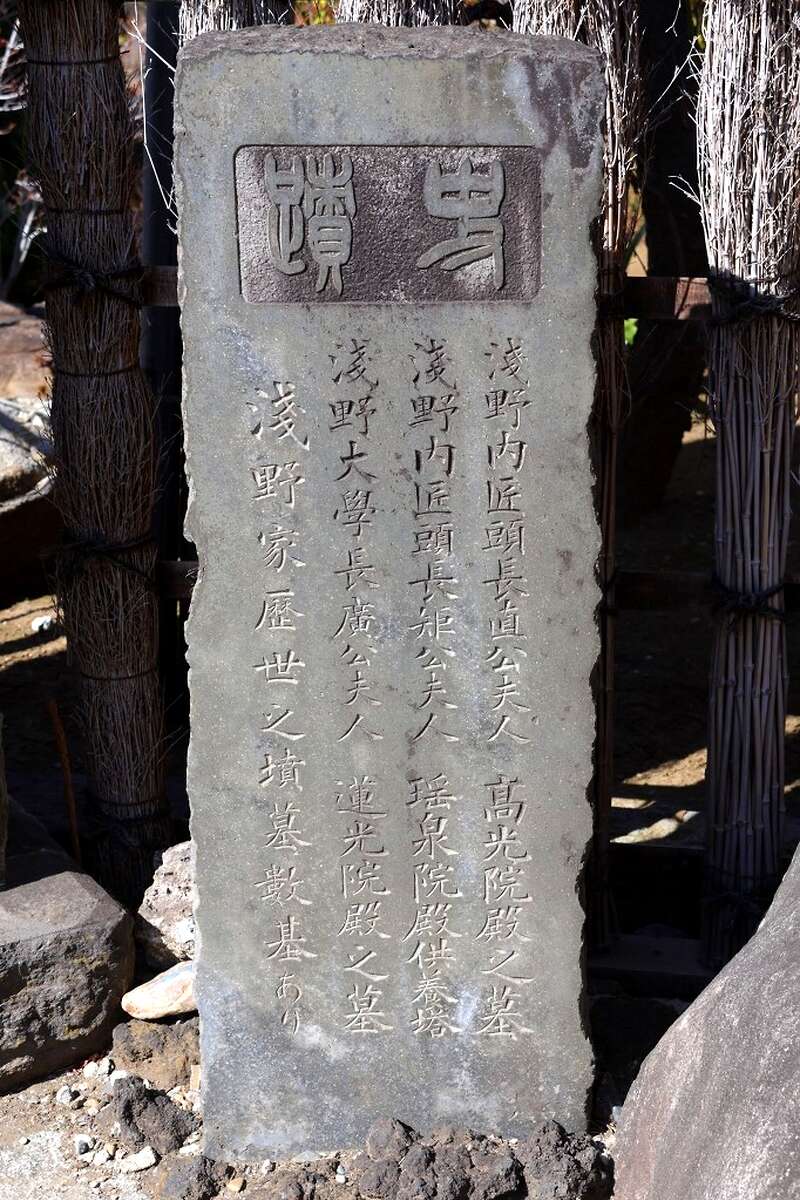 史蹟
淺野内匠頭長直公夫人 高光院殿之墓
淺野内匠頭長矩公夫人 瑶泉院殿供養塔
淺野大學長廣公夫人 蓮光院殿之墓
淺野家歴世之墳墓數基あり